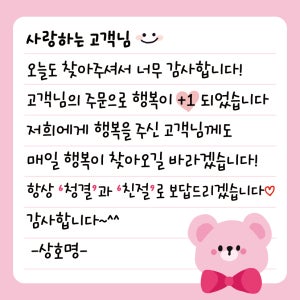 사랑하는 고객님
오늘도 찾아주셔서 너무 감사합니다!
고객님의 주문으로 행복이 +1 되었습니다
저희에게 행복을 주신 고객님께도
매일 행복이 찾아오길 바라겠습니다!
항상 ‘청결’과 ‘친절’로 보답드리겠습니다♡
감사합니다~^^
-상호명-